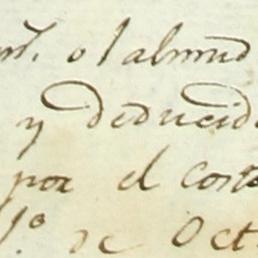 o 1 almud
y deducid
por el costo
1.º de Oct